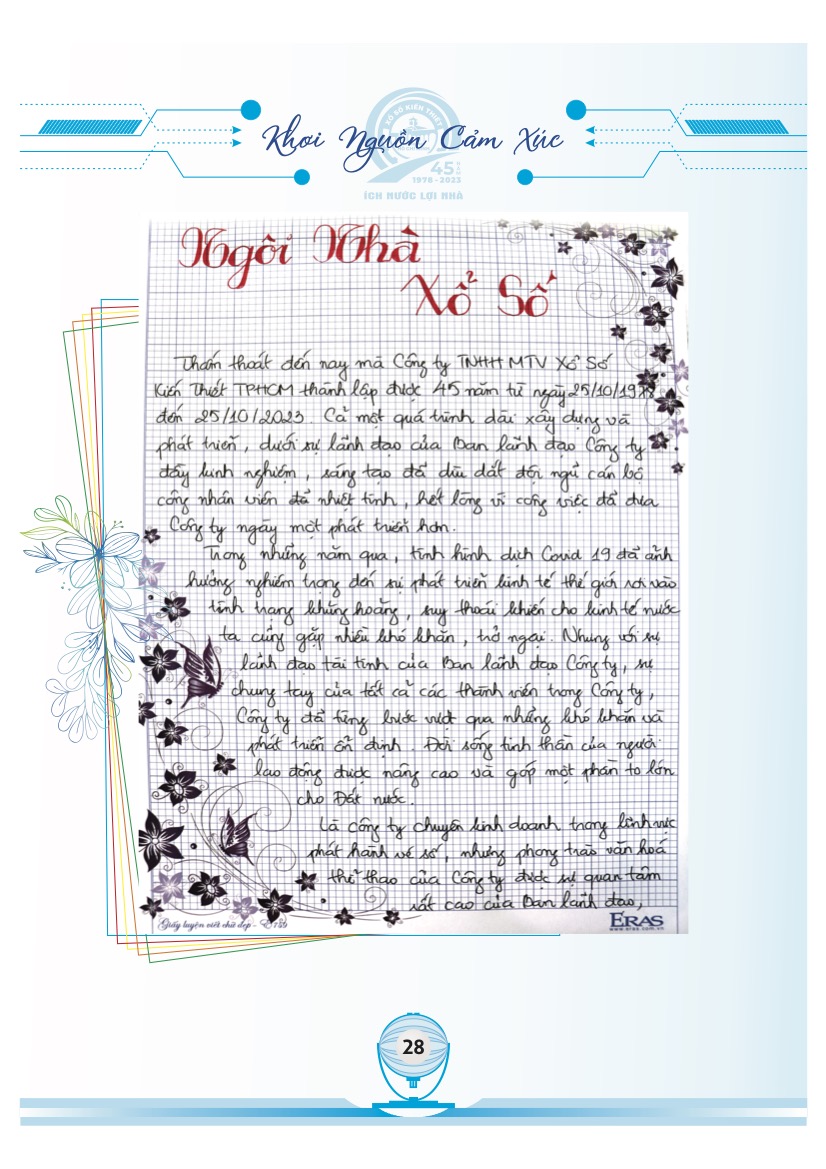 XỔ SỐ KIẾN THIẾT
Khơi Nguồn Cảm Xúc
45 NĂM
1978 - 2023
ÍCH NƯỚC LỢI NHÀ
Ngôi Nhà
Xổ Số
Thấm thoát đến nay mà Công ty TNHH MTV Xổ Số
Kiến Thiết TPHCM thành lập được 45 năm từ ngày 25/10/1978
đến 25/10/2023. Cả một quá trình dài xây dựng và
phát triển, dưới sự lãnh đạo của Ban lãnh đạo Công ty
đầy kinh nghiệm, sáng tạo đã dìu dắt đội ngũ cán bộ
công nhân viên đã nhiệt tình, hết lòng vì công việc đã đưa
Công ty ngày một phát triển hơn.
Trong những năm qua, tình hình dịch Covid 19 đã ảnh
hưởng nghiêm trọng đến sự phát triển kinh tế thế giới rơi vào
tình trạng khủng hoảng, suy thoái khiến cho kinh tế nước
ta cũng gặp nhiều khó khăn, trở ngại. Nhưng với sự
lãnh đạo tài tình của Ban lãnh đạo Công ty, sự
chung tay của tất cả các thành viên trong Công ty,
Công ty đã từng bước vượt qua những khó khăn và
phát triển ổn định. Đời sống tinh thần của người
lao động được nâng cao và góp một phần to lớn
cho Đất nước.
Là công ty chuyên kinh doanh trong lĩnh vực
phát hành vé số, nhưng phong trào văn hoá
thể thao của Công ty được sự quan tâm
rất cao của Ban lãnh đạo,
Giấy luyện viết chữ đẹp -
ERAS
www.eras.com.vn
28